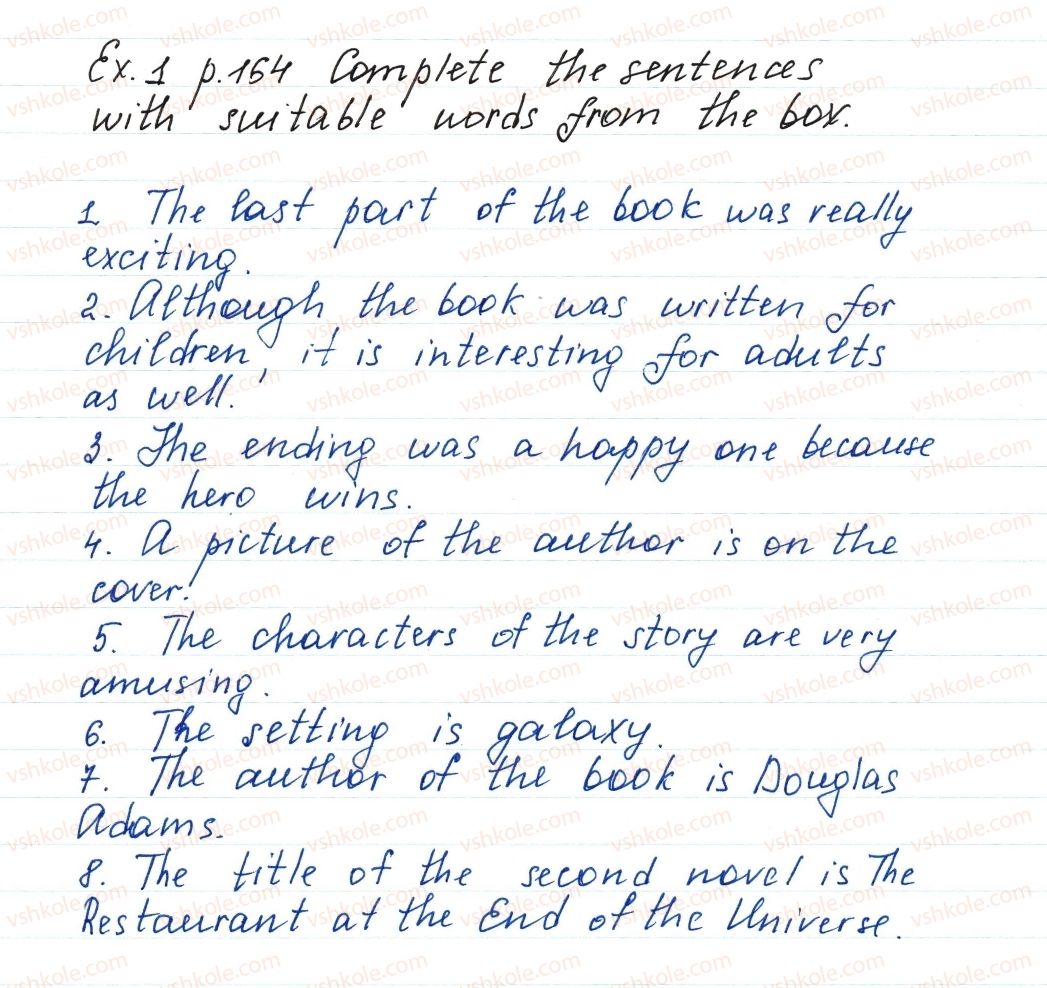 Ex. 1 p.164 Complete the sentences
with suitable words from the box.
1 The last part of the book was really
exciting.
2. Although the book was written for
children, it is interesting for adults
as well.
3. The ending was a happy one because
the hero wins.
4. A picture of the author is on the
cover.
5. The characters of the story are very
amusing.
6. The setting is galaxy.
7. The author of the book is Douglas
Adams.
8. The title of the second novel is The
Restaurant at the End of the Universe.
vshkole.com